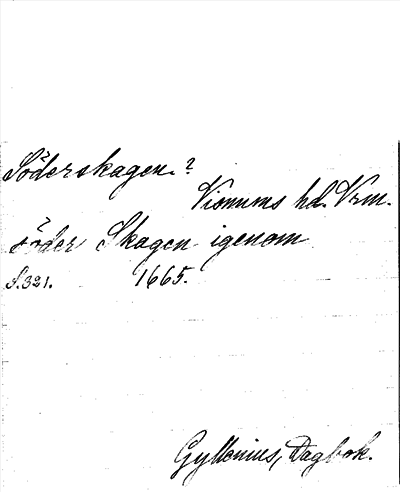 Söderskagen?
Visnums hd. Vrm.
söder Skagen igenom
S.321. 1665.
Gyllenius, Dagbok.